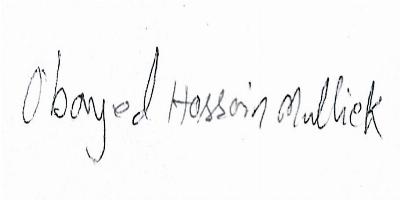 Obayed Hossain Mulliek